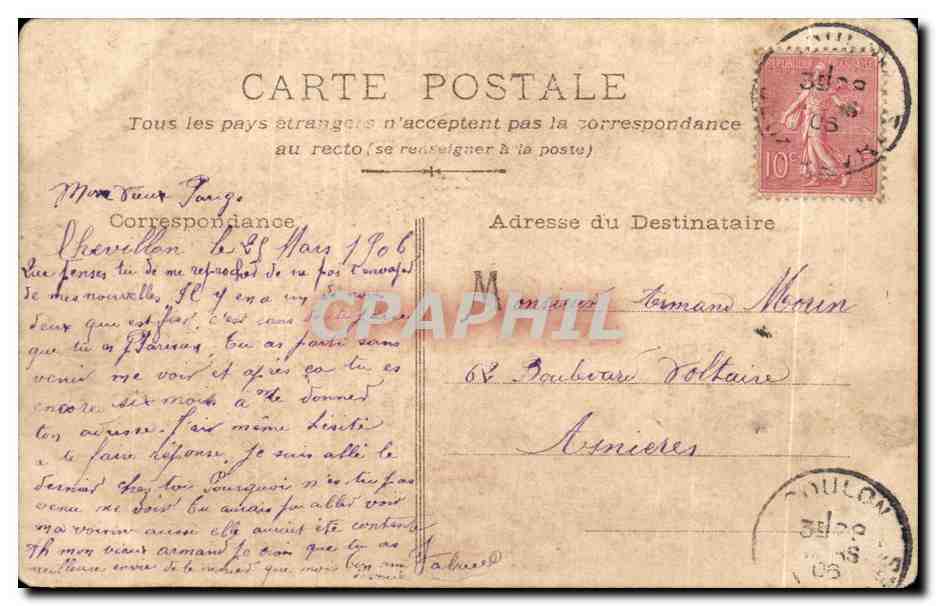 CARTE POSTALE
Tous les pays étrangers n'acceptent pas la correspondance
au recto (se renseigner à la poste)
REPUBLIQUE FRANÇAISE
10c
06
Mon Vieux
Correspondance
Chevillon le 25 Mars 1906
Que penses tu de me reprocher de ne pas t'envoyer
de mes nouvelles Il y en a un de nous
deux que est fier, c'est sans
que tu es Parisien, Tu as parti sans
venir me voir et après ça tu es
encore six mois a me donner
ton adresse. J'ai même hésité
a te faire réponse. Je suis allé le
dernier chez toi Pourquoi n'es tu pas
venu me voir tu aurais pu aller voir
ma voisine aussi elle aurait été contente
Ah mon vieux armand je crois que tu as
meilleure envie de te que moi bon
Adresse du Destinataire
Monsieur Armand Morin
62 Boulevard Voltaire
Asnieres
CPAPHIL
TOULON
06